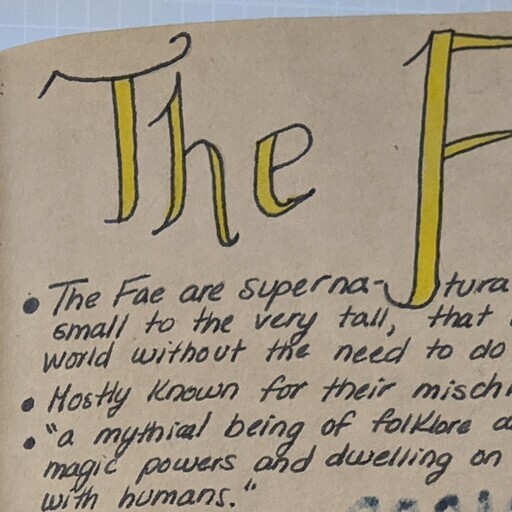 The F
• The Fae are superna-tura
small to the very tall, that
world without the need to do
• Mostly Known for their mischi
• "a mythical being of folklore a
magic powers and dwelling on
with humans."